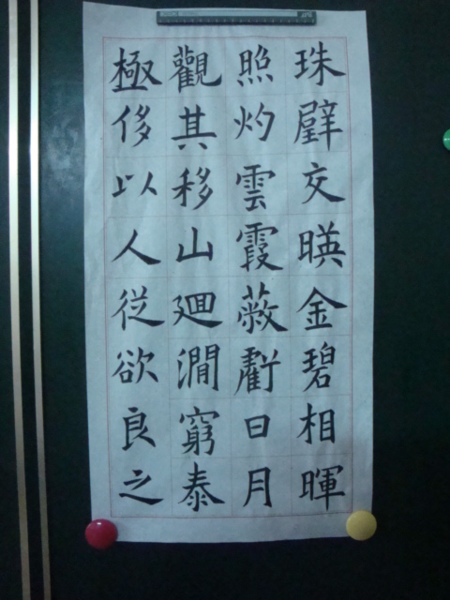 珠璧交暎金碧相暉
照灼雲霞蔽虧日月
觀其移山迴澗窮泰
極侈以人從欲良之